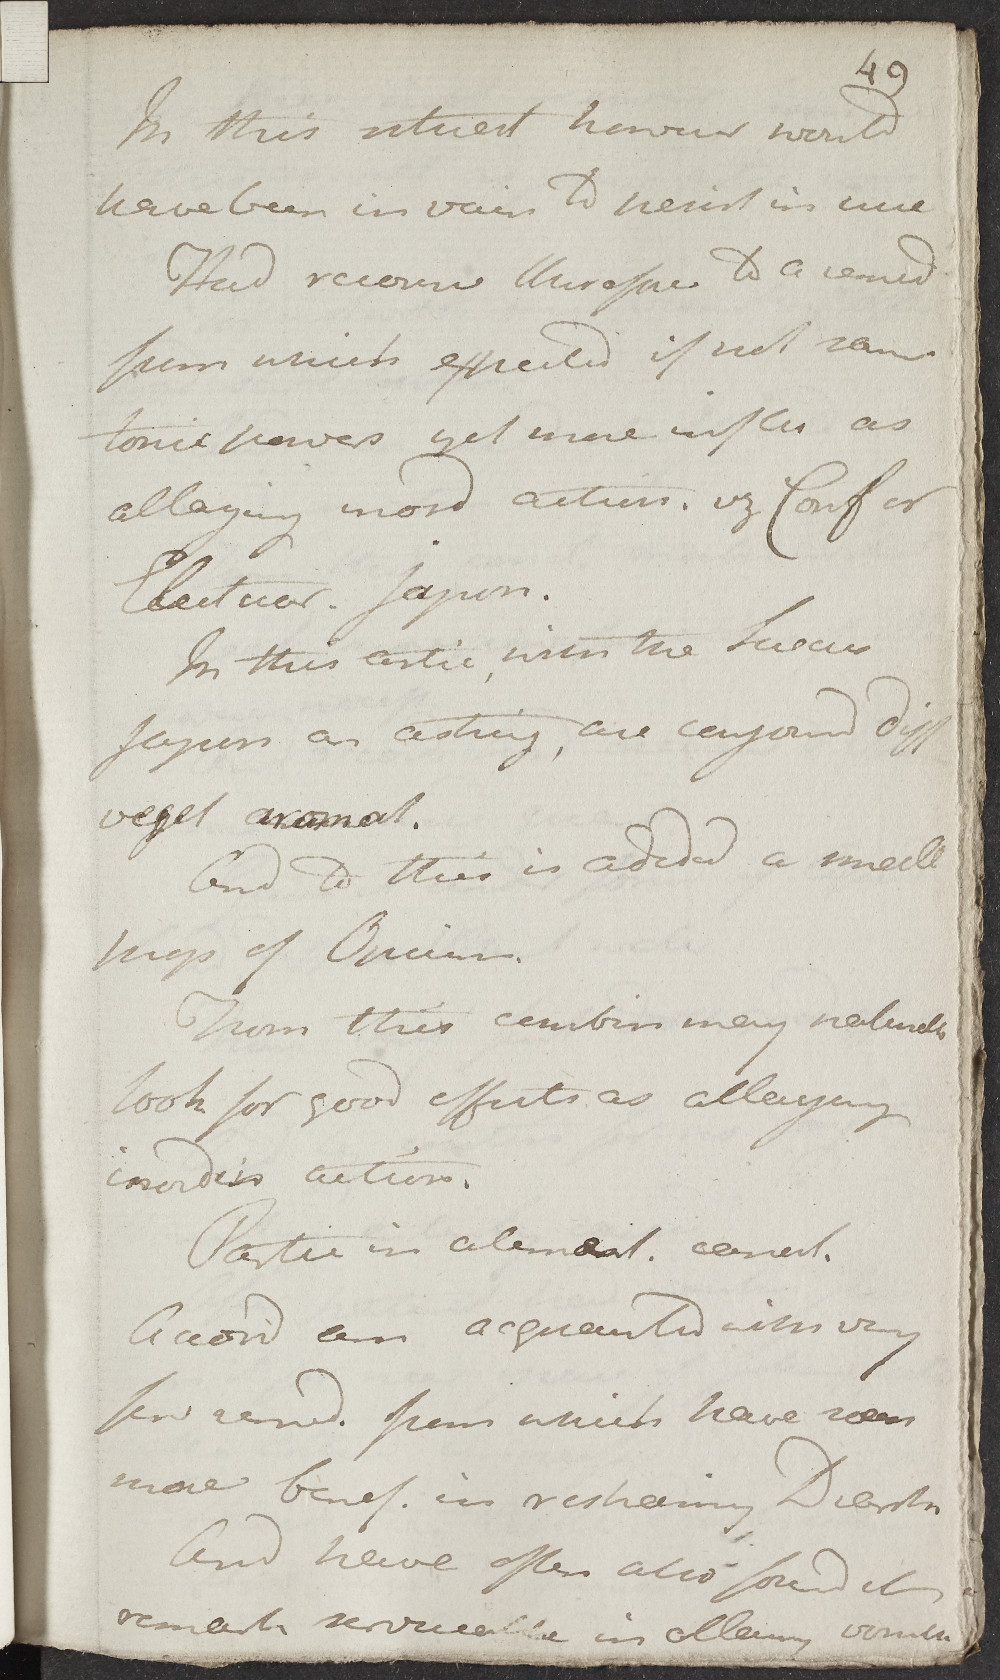 49
In this situat however would
have been in vain to persist in use
Had recourse therefore to a remed
from which expected if not same
tonic powers yet more influ as
allaying inord action. vz Conf or
Electuar. Japon.
In this artic, with the Succus
Japon an astring, are conjoined diff
veget aromat.
And to this is added a small
prop of Opium.
From this combin may naturally
look for good effects as allaying
inordin action.
Partic in aliment. canal.
Accord am acquainted with very
few remed. from which have seen
more benef. in restraining Diarrh
And have often also found it
remark serviceable in allaying vomit